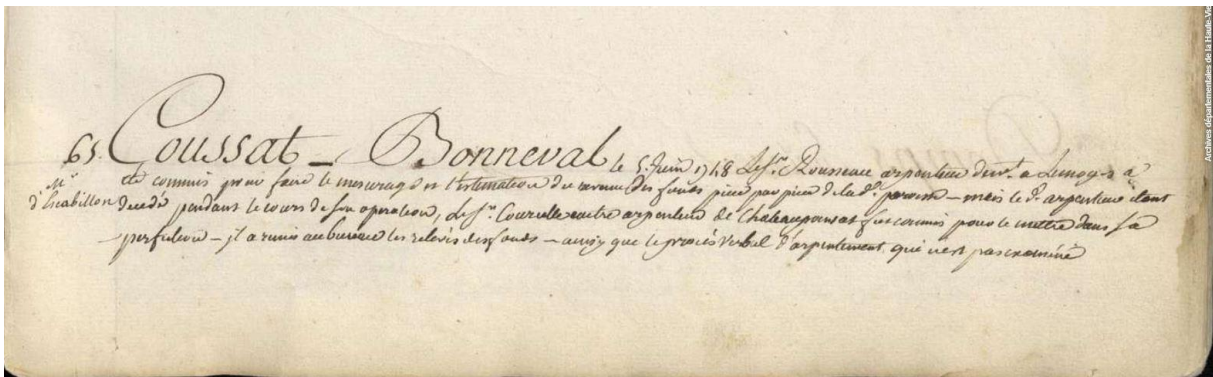 65. Coussat - Bonneval, le 5. Juin 1748 Le Sr. Rousseau arpenteur demt. a Limoges a
été commis pour faire le mesurage et l'estimation du revenu des fonds piece par piece de lad. paroisse - mais led. arpenteur étant
Mr.
d'Escabillon
decedé pendant le cours de son operation, Le Sr. Courcelle autre arpenteur de Chateauponsat fut commis pour le mettre dans sa
- il a remis au bureau les relevés des fonds - ainsy que le procès verbal d'arpentement qui n'est pas examiné
Archives départementales de la Haute-Vie